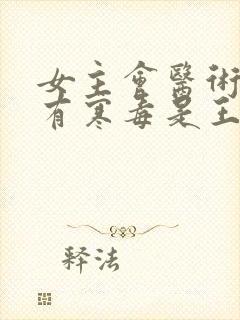 女主會醫術
有寒毒是王
释法